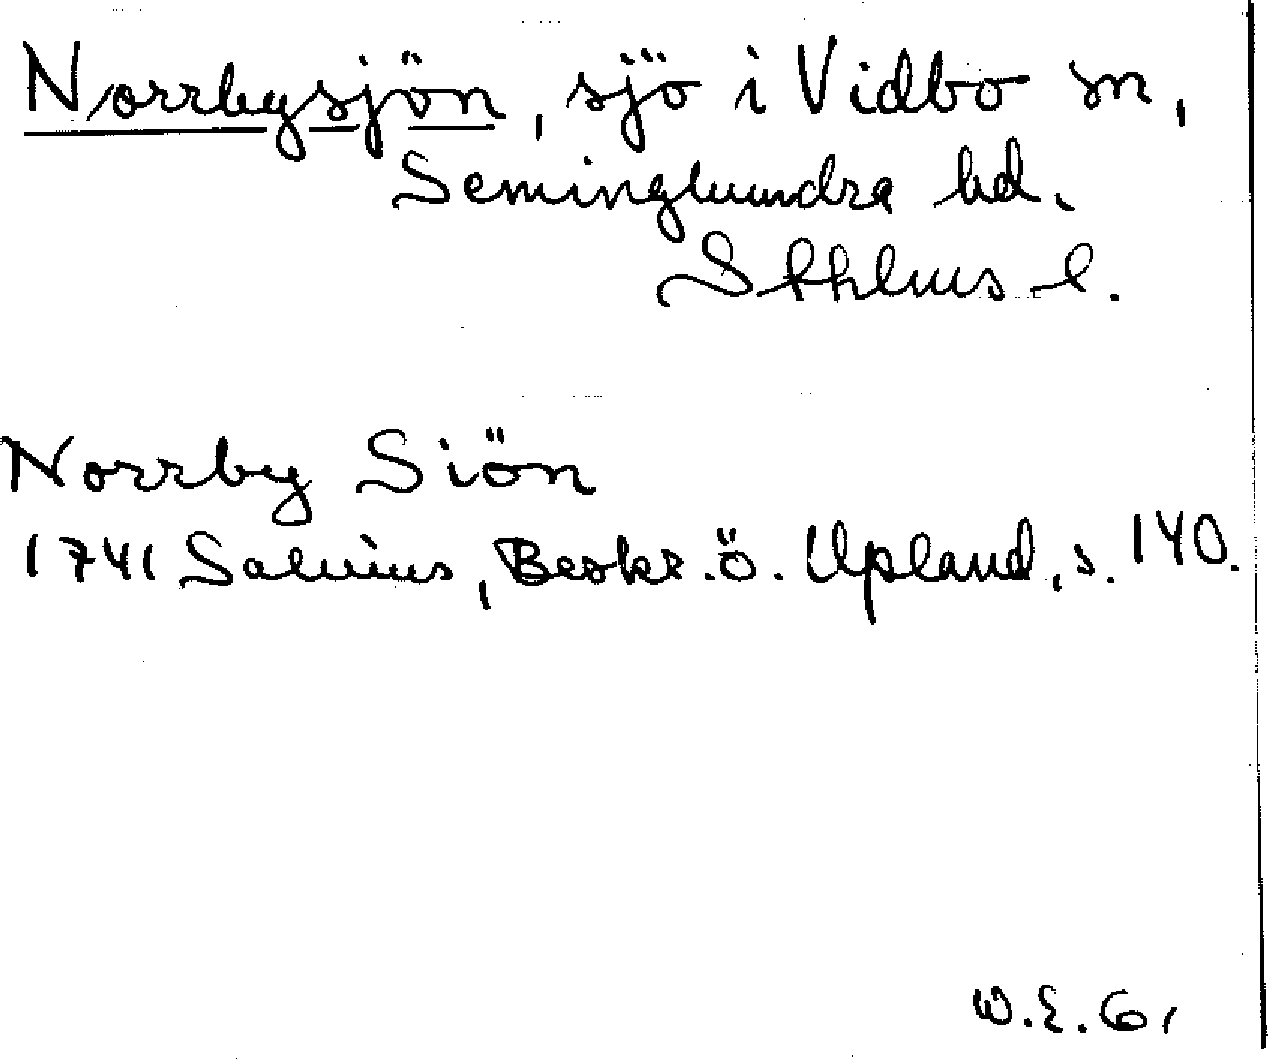 Norrbysjön, sjö i Vidbo sn,
Seminghundra hd.
Sthlms l.
Norrby Siön
1741 Salvius, Beskr. ö. Upland, s. 140.
W.E.G,